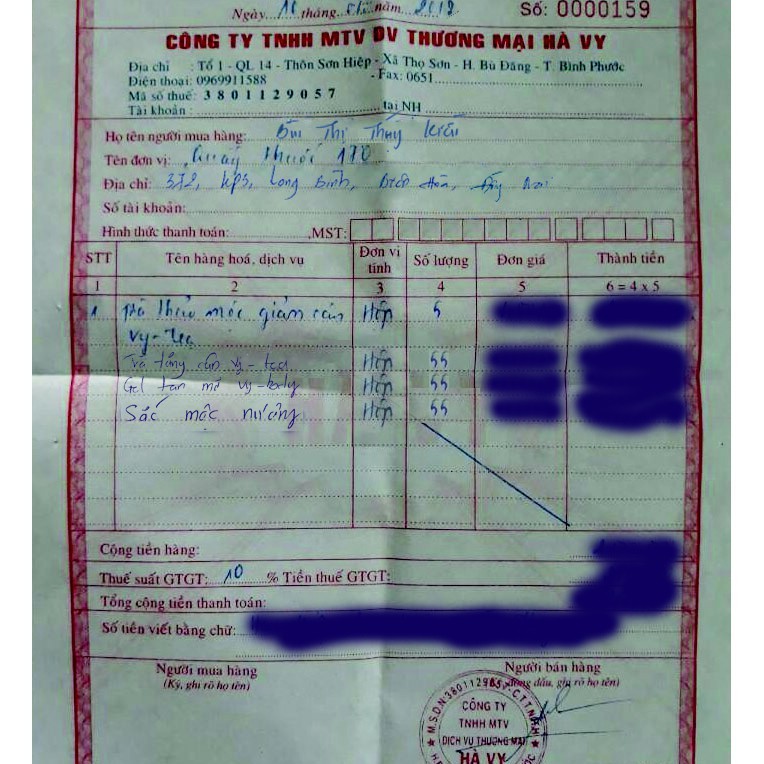 Ngày 16 tháng năm 2018 Số: 0000159
CÔNG TY TNHH MTV DV THƯƠNG MẠI HÀ VY
Địa chỉ : Tổ 1 - QL 14 - Thôn Sơn Hiệp - Xã Thọ Sơn - H. Bù Đăng - T. Bình Phước
Điện thoại: 0969911588 - Fax: 0651
Mã số thuế: 3801129057
Tài khoản : tại NH
Họ tên người mua hàng: Bùi Thị Thúy
Tên đơn vị: Quầy thuốc 170
Địa chỉ: 372, KP3, Long Bình, Biên Hòa, Đồng Nai
Số tài khoản:
Hình thức thanh toán: MST:
STT Tên hàng hoá, dịch vụ Đơn vị tính Số lượng Đơn giá Thành tiền
1 2 3 4 5 6 = 4 x 5
1 trà thảo mộc giảm cân Hộp 5
Vy-tea
Trà tăng cân Vy-tea Hộp 55
Gel tan mỡ Vy-body Hộp 55
Sắc mộc nương Hộp 55
Cộng tiền hàng:
Thuế suất GTGT: 10 % Tiền thuế GTGT:
Tổng cộng tiền thanh toán:
Số tiền viết bằng chữ:
Người mua hàng Người bán hàng
(Ký, ghi rõ họ tên) đóng dấu, ghi rõ họ tên)
CÔNG TY
TNHH MTV
DỊCH VỤ THƯƠNG MẠI
HÀ VY